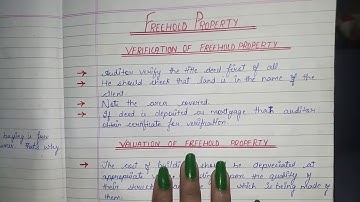 FREEHOLD PROPERTY
VERIFICATION OF FREEHOLD PROPERTY
→ Auditor verify the title deed first of all
→ He should check that land is in the name of the
client.
→ Note the area covered.
→ If deed is deposited as mortgage that auditor
obtain certificate for verification.
VALUATION OF FREEHOLD PROPERTY
→ The cost of building should be depreciated at
appropriate upon the quality of
their which is being made of
them.
buying is free
that's why